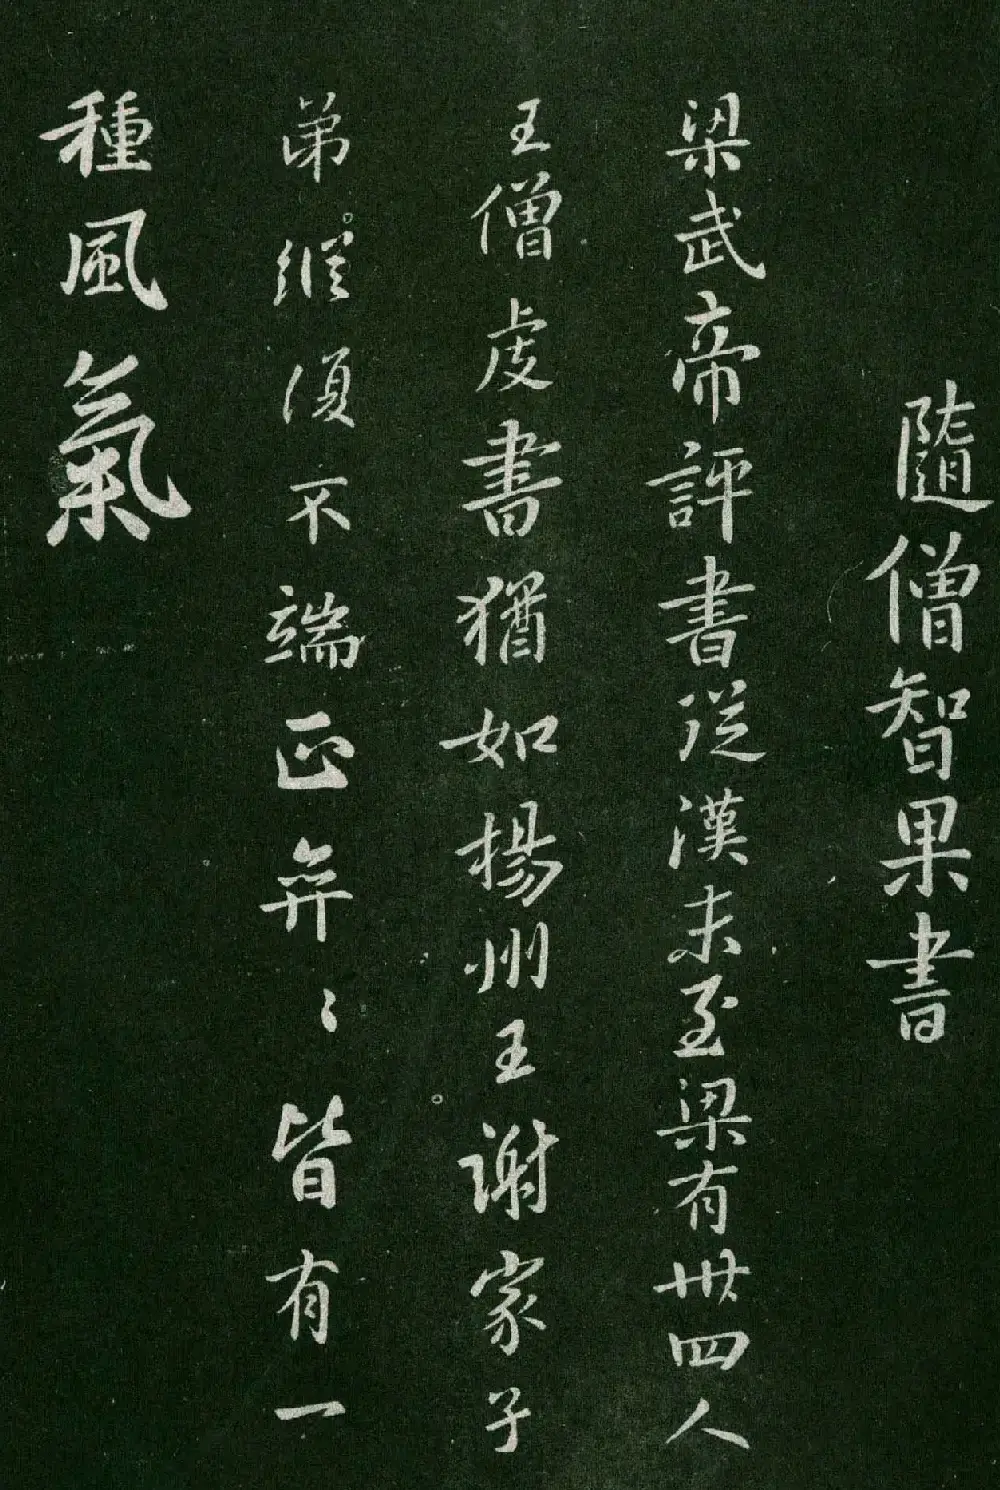 隨僧智果書
梁武帝評書從漢末至梁有卅四人
王僧虔書猶如楊州王謝家子
弟縱須不端正弈〻皆有一
種風氣